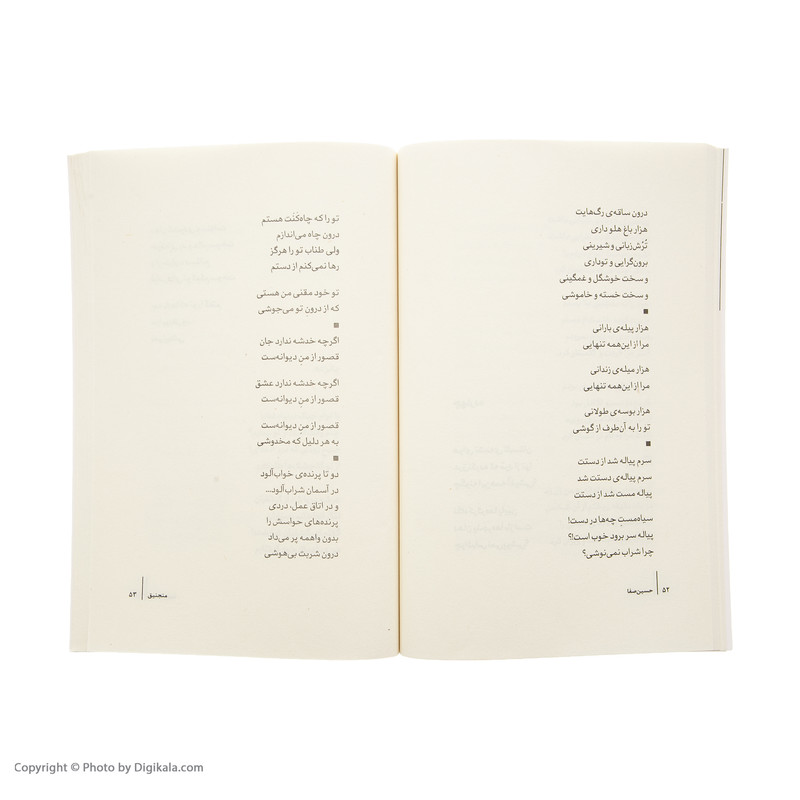 درون ساقه‌ی رگ‌هایت
هزار باغ هلو داری
تُرُش‌زبانی و شیرینی
برون‌گرایی و توداری
و سخت خوشگل و غمگینی
و سخت خسته و خاموشی
هزار پیله‌ی بارانی
مرا از این‌همه تنهایی
هزار میله‌ی زندانی
مرا از این‌همه تنهایی
هزار بوسه‌ی طولانی
تو را به آن‌طرف از گوشی
سرم پیاله شد از دستت
سرم پیاله‌ی دستت شد
پیاله مست شد از دستت
سیاه‌مستِ چه‌ها در دست!
پیاله سر برود خوب است!؟
چرا شراب نمی‌نوشی؟
۵۲ حسین صفا
تو را که چاه‌کَنَت هستم
درون چاه می‌اندازم
ولی طناب تو را هرگز
رها نمی‌کنم از دستم
تو خود مقنی من هستی
که از درون تو می‌جوشی
اگرچه خدشه ندارد جان
قصور از منِ دیوانه‌ست
اگرچه خدشه ندارد عشق
قصور از منِ دیوانه‌ست
قصور از منِ دیوانه‌ست
به هر دلیل که مخدوشی
دو تا پرنده‌ی خواب‌آلود
در آسمان شراب‌آلود...
و در اتاق عمل، دردی
پرنده‌های حواسش را
بدون واهمه پر می‌داد
درون شربت بی‌هوشی
منجنیق ۵۳
Copyright © Photo by Digikala.com